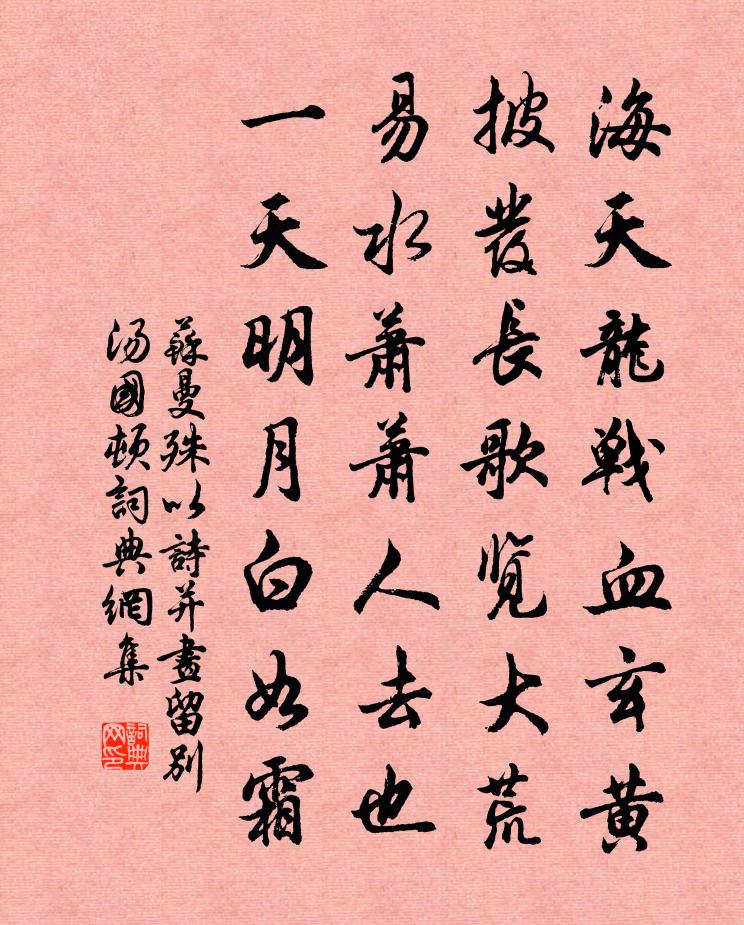 海天龍戰血玄黃
披發長歌覽大荒
易水蕭蕭人去也
一天明月白如霜
蘇曼殊以詩并畫留別
湯國頓詞典網集
詞典网印